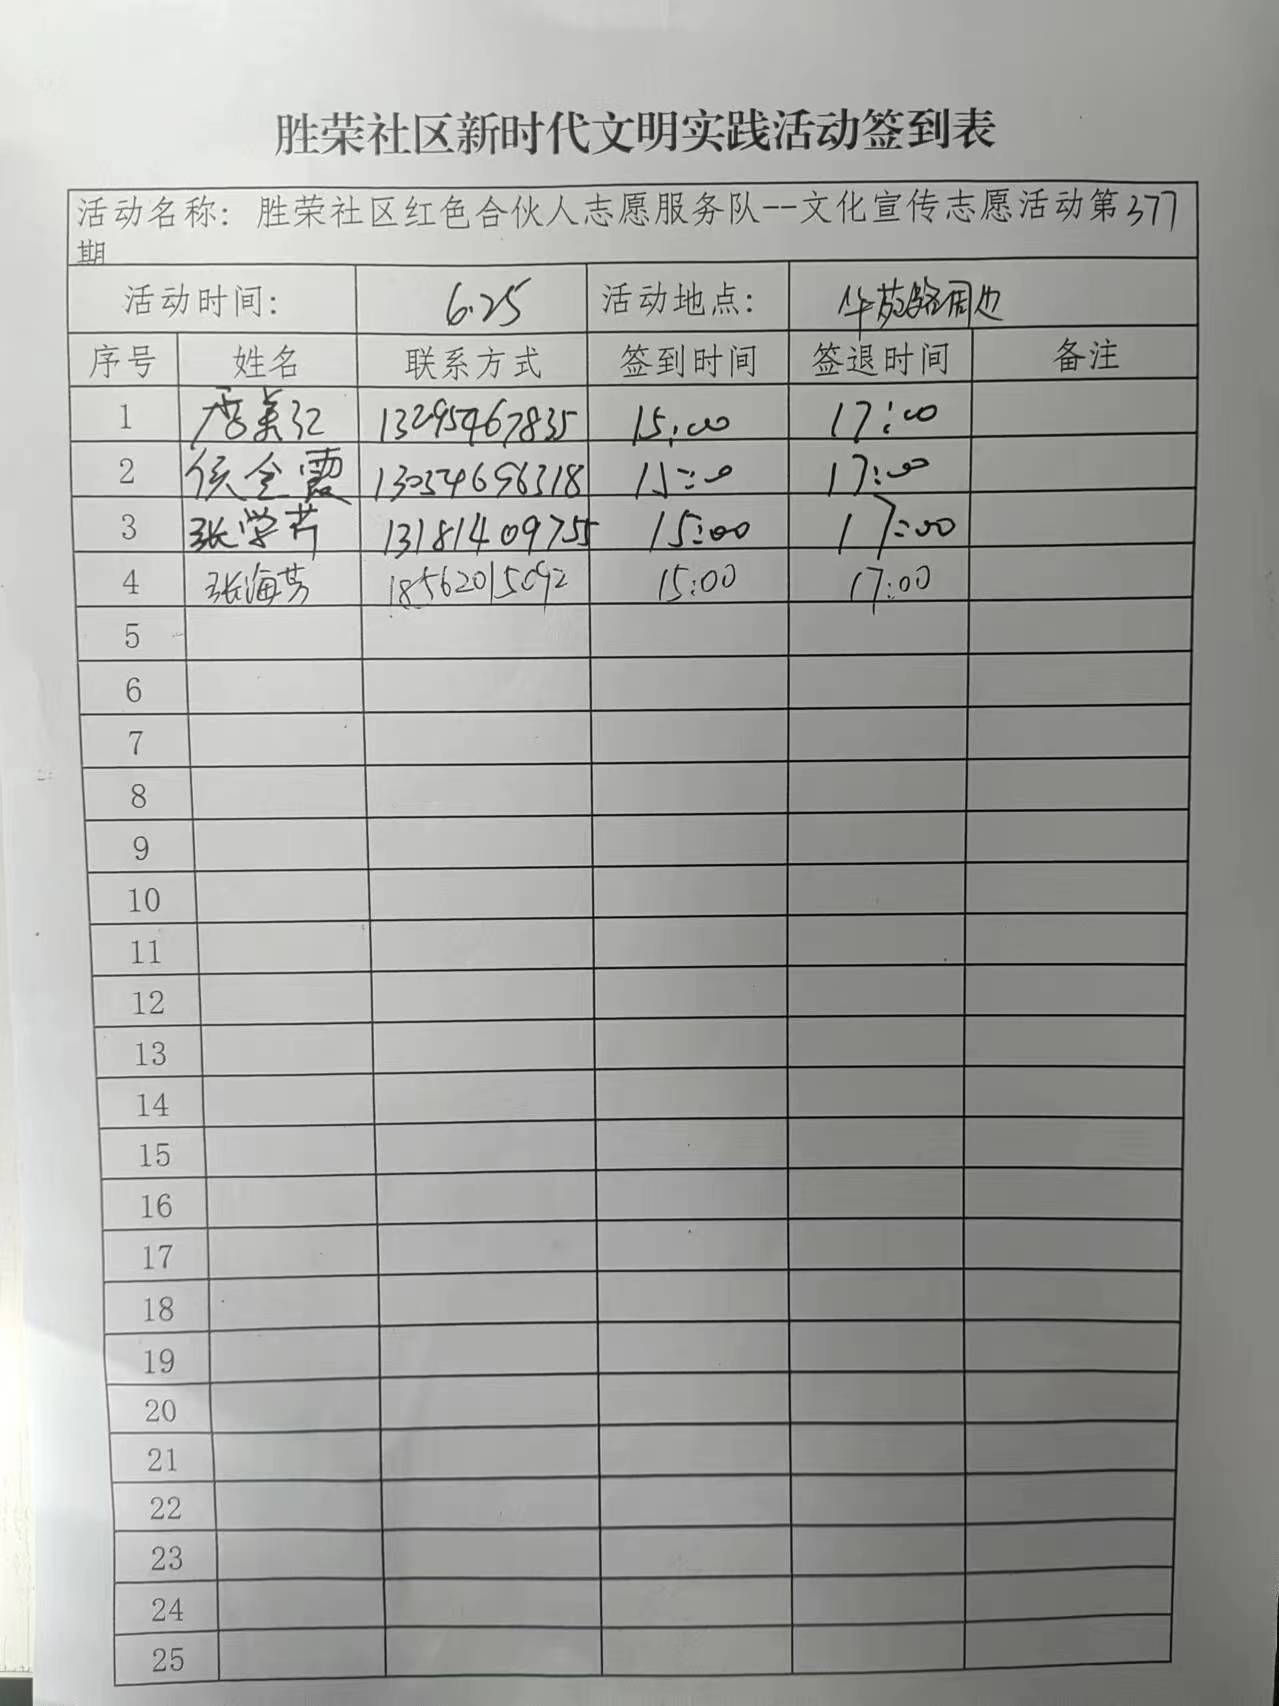 胜荣社区新时代文明实践活动签到表
活动名称：胜荣社区红色合伙人志愿服务队--文化宣传志愿活动第377
期
活动时间： 6.25 活动地点： 华苑路周边
序号 姓名 联系方式 签到时间 签退时间 备注
1 美红 13295467835 15:00 17:00
2 侯金霞 13054696318 15:00 17:00
3 张学芹 13181409755 15:00 17:00
4 张海芳 18562015092 15:00 17:00
5
6
7
8
9
10
11
12
13
14
15
16
17
18
19
20
21
22
23
24
25